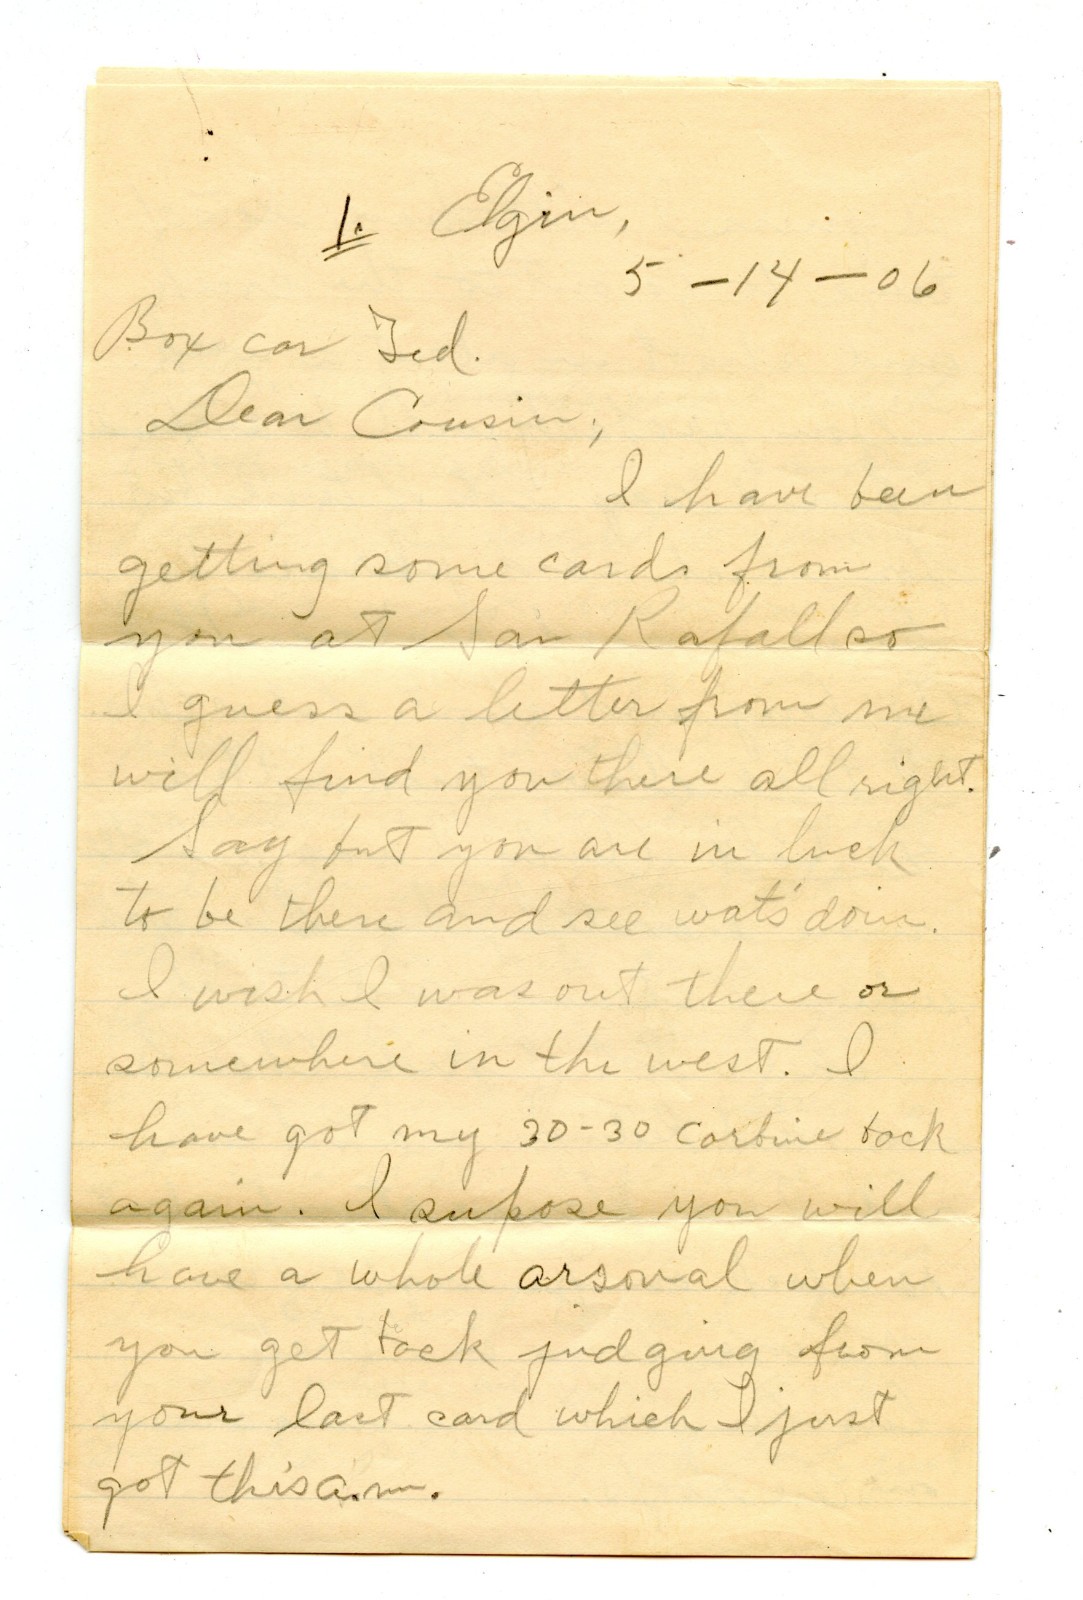 1. Elgin,
5-14-06
Box car Ted.
Dear Cousin;,
I have been
getting some cards from
you at San Rafall so
I guess a letter from me
will find you there all right.
Say but you are in luck
to be there and see wat's doin.
I wish I was out there or
somewhere in the west. I
have got my 30-30 carbine back
again. I supose you will
have a whole arsonal when
you get back judging from
your last card which I just
got this a.m.